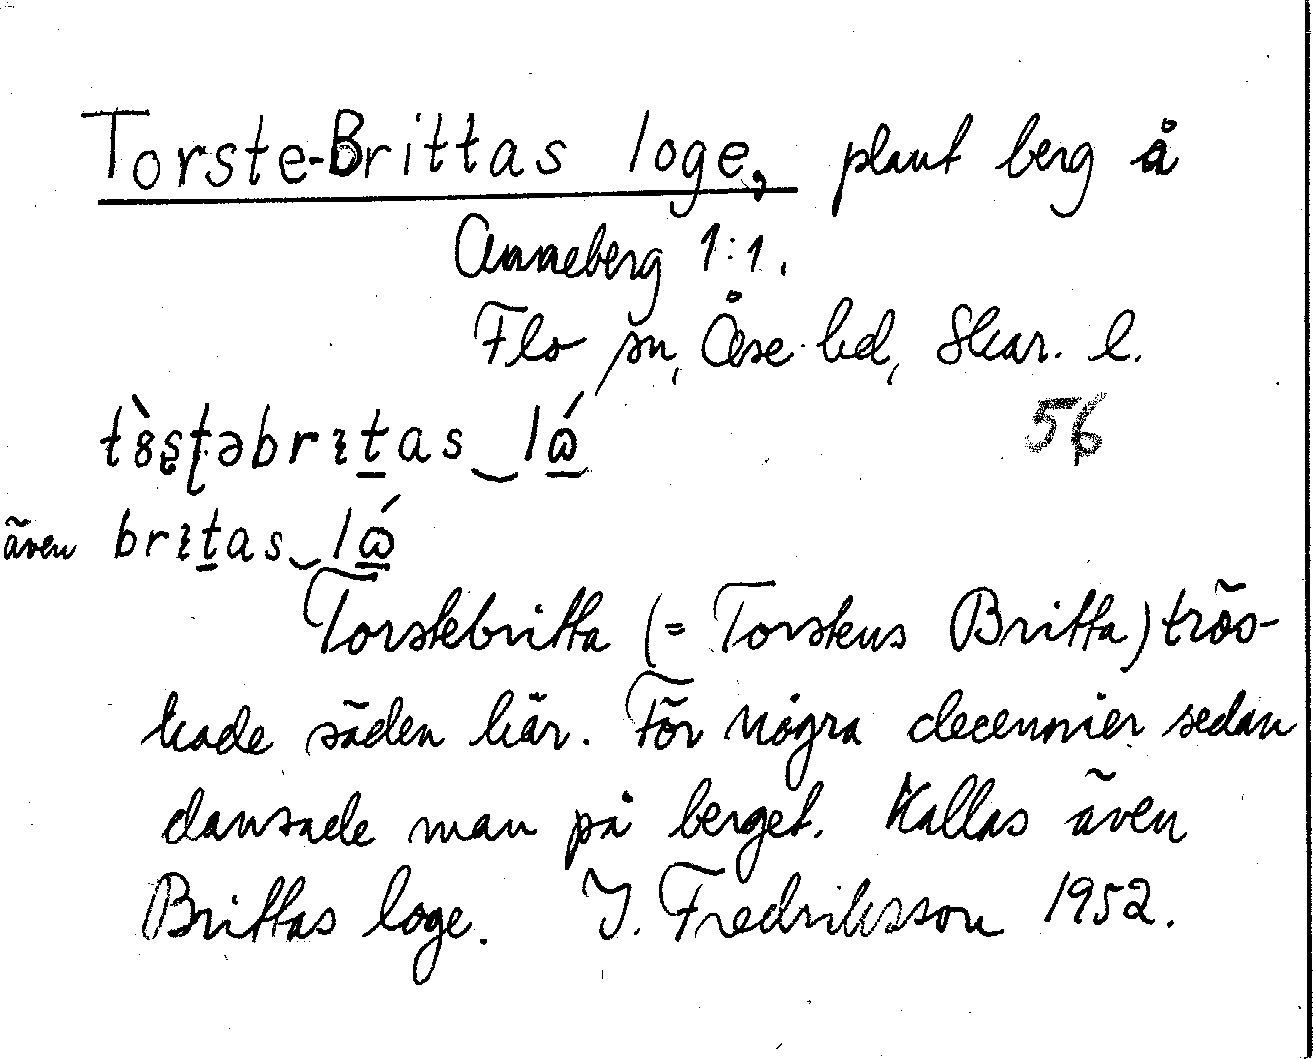 Torste-Brittas loge, plant berg å
Anneberg 1:1.
Flo sn, Åse hd, Skar. l.
56
även
Torstebritta (= Torstens Britta) trös-
kade säden här. För några decennier sedan
dansade man på berget. Kallas även
Brittas loge. I. Fredriksson 1952.